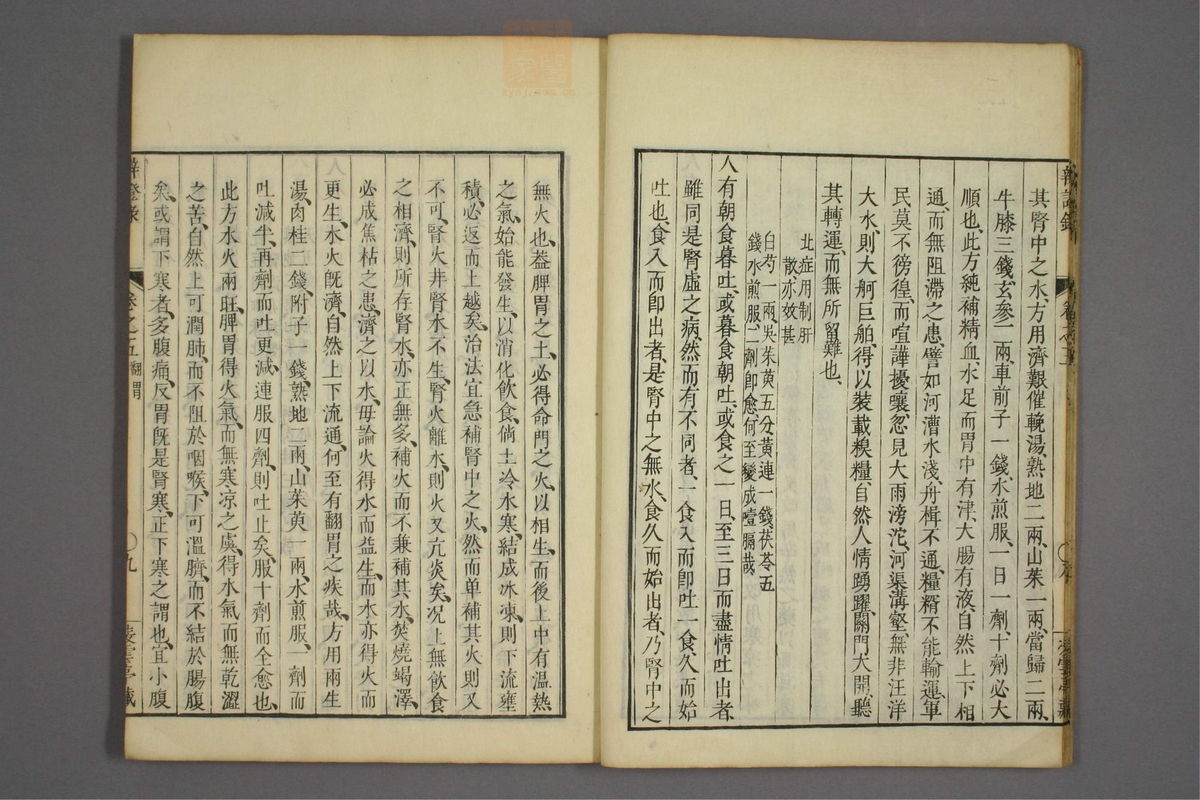 其腎中之水、方用濟艱催輓湯、熟地二兩、山茱一兩、當歸二兩、
牛膝三錢、玄參二兩、車前子一錢、水煎服、一日一劑、十劑必大
順也、此方純補精血、水足而胃中有津、大腸有液、自然上下相
通、而無阻滯之患、譬如河漕水淺、舟楫不通、糧糈不能輸運、軍
民莫不徬徨、而喧譁擾嚷、忽見大雨滂沱、河渠溝壑、無非汪洋
大水、則大舸巨舶、得以裝載糗糧、自然人情踴躍、關門大開、聽
其轉運、而無所留難也、
北症用制肝
散、亦妙甚
白芍一兩、吳茱萸五分黃連一錢茯苓五
錢水煎服、二劑卽愈、何至變成噎膈哉
人有朝食暮吐、或暮食朝吐、或食之一日、至三日而盡情吐出者、
雖同是腎虛之病、然而有不同者、一食入而卽吐、一食久而始
吐也、食入而卽出者、是腎中之無水、食久而始出者、乃腎中之
無火也、葢脾胃之土、必得命門之火、以相生、而後土中有温熱
之氣、始能發生、以消化飲食、倘土冷水寒、結成冰凍、則下流壅
積、必返而上越矣、治法宜急補腎中之火、然而单補其火、則又
不可、腎火非腎水不生、腎火離水、則火又亢炎矣、况上無飲食
之相濟、則所存腎水、亦正無多、補火而不兼補其水、焚燒竭澤、
必成焦枯之患、濟之以水、毋論火得水而益生、而水亦得火而
更生、水火旣濟、自然上下流通、何至有翻胃之疾哉、方用兩生
湯、肉桂二錢、附子一錢、熟地二兩、山茱萸一兩、水煎服、一劑而
吐減半、再劑而吐更減、連服四劑、則吐止矣、服十劑而全愈也、
此方水火兩旺、脾胃得火氣、而無寒凉之虞、得水氣而無乾澀
之苦、自然上可潤肺、而不阻於咽喉、下可溫臍、而不結於腸腹
矣、或謂下寒者、多腹痛、反胃旣是腎寒、正下寒之謂也、宜小腹
辨證彔
卷之五翻胃
九